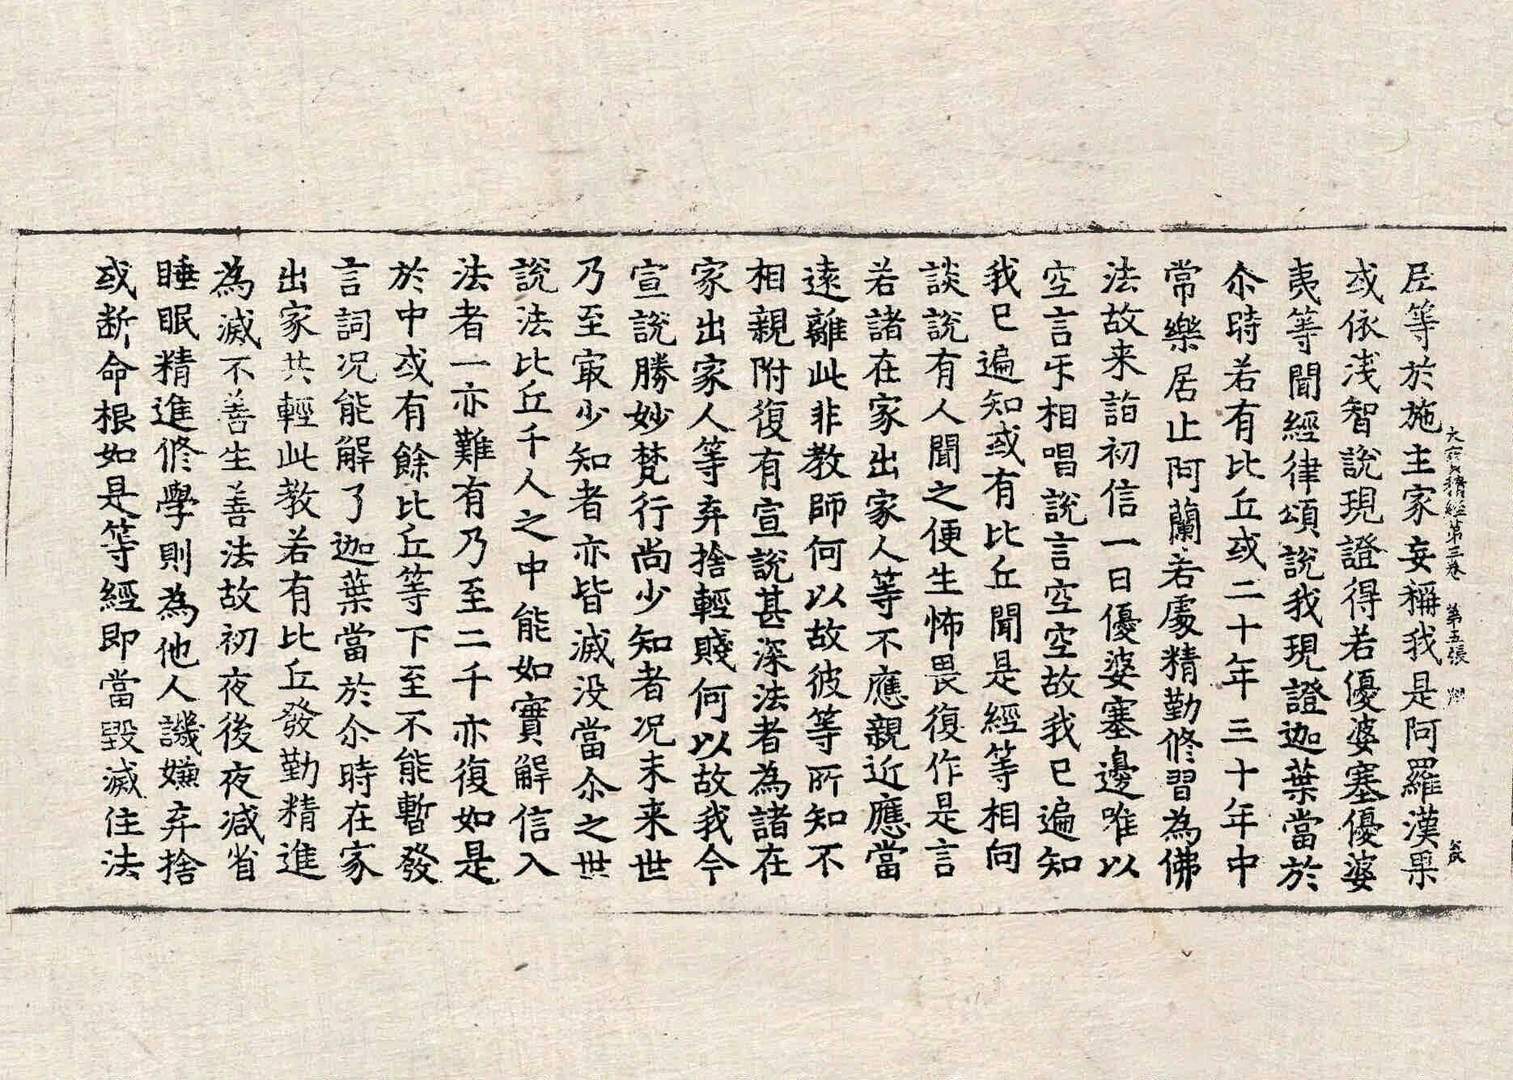 大寶積經第三卷 第五張
尼等於施主家妄稱我是阿羅漢果
或依浅智說現證得若優婆塞優婆
夷等聞經律頌說我現證迦葉當於
尒時若有比丘或二十年三十年中
常樂居止阿蘭若處精勤修習為佛
法故来詣初信一日優婆塞邊唯以
空言㸦相唱說言空空故我已遍知
我已遍知或有比丘聞是經等相向
談說有人聞之便生怖畏復作是言
若諸在家出家人等不應親近應當
遠離此非教師何以故彼等所知不
相親附復有宣說甚深法者為諸在
家出家人等弃捨輕賤何以故我今
宣說勝妙梵行尚少知者况末来世
乃至㝡少知者亦皆滅没當尒之世
說法比丘千人之中能如實解信入
法者一亦難有乃至二千亦復如是
於中或有餘比丘等下至不能暫發
言詞况能解了迦葉當於尒時在家
出家共輕此教若有比丘發勤精進
為滅不善生善法故初夜後夜减省
睡眠精進修學則為他人譏嫌弃捨
或断命根如是等經即當毀滅住法